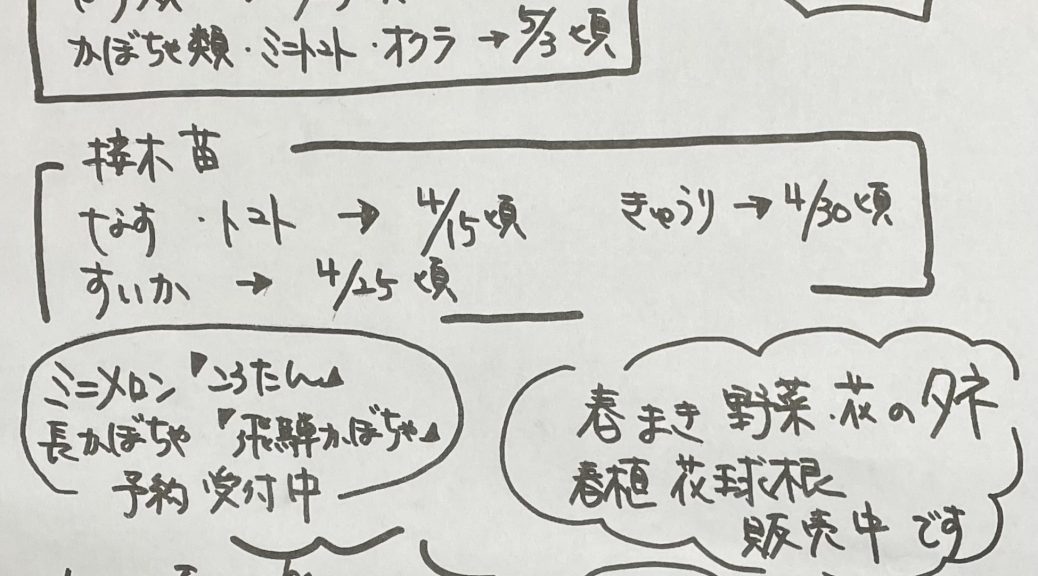 かぼちゃ類・ミニトマト・オクラ→5/3頃
接木苗
なす・トマト → 4/15頃 きゅうり→4/30頃
すいか → 4/25頃
ミニメロン『ころたん』
長かぼちゃ『飛騨かぼちゃ』
予約受付中
春まき野菜・花のタネ
春植花球根
販売中です